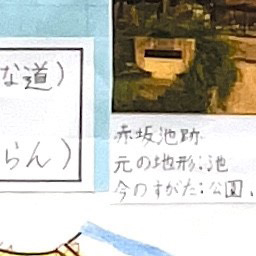 な道)
らん)
赤坂池跡
元の地形:池
今のすがた:公園、